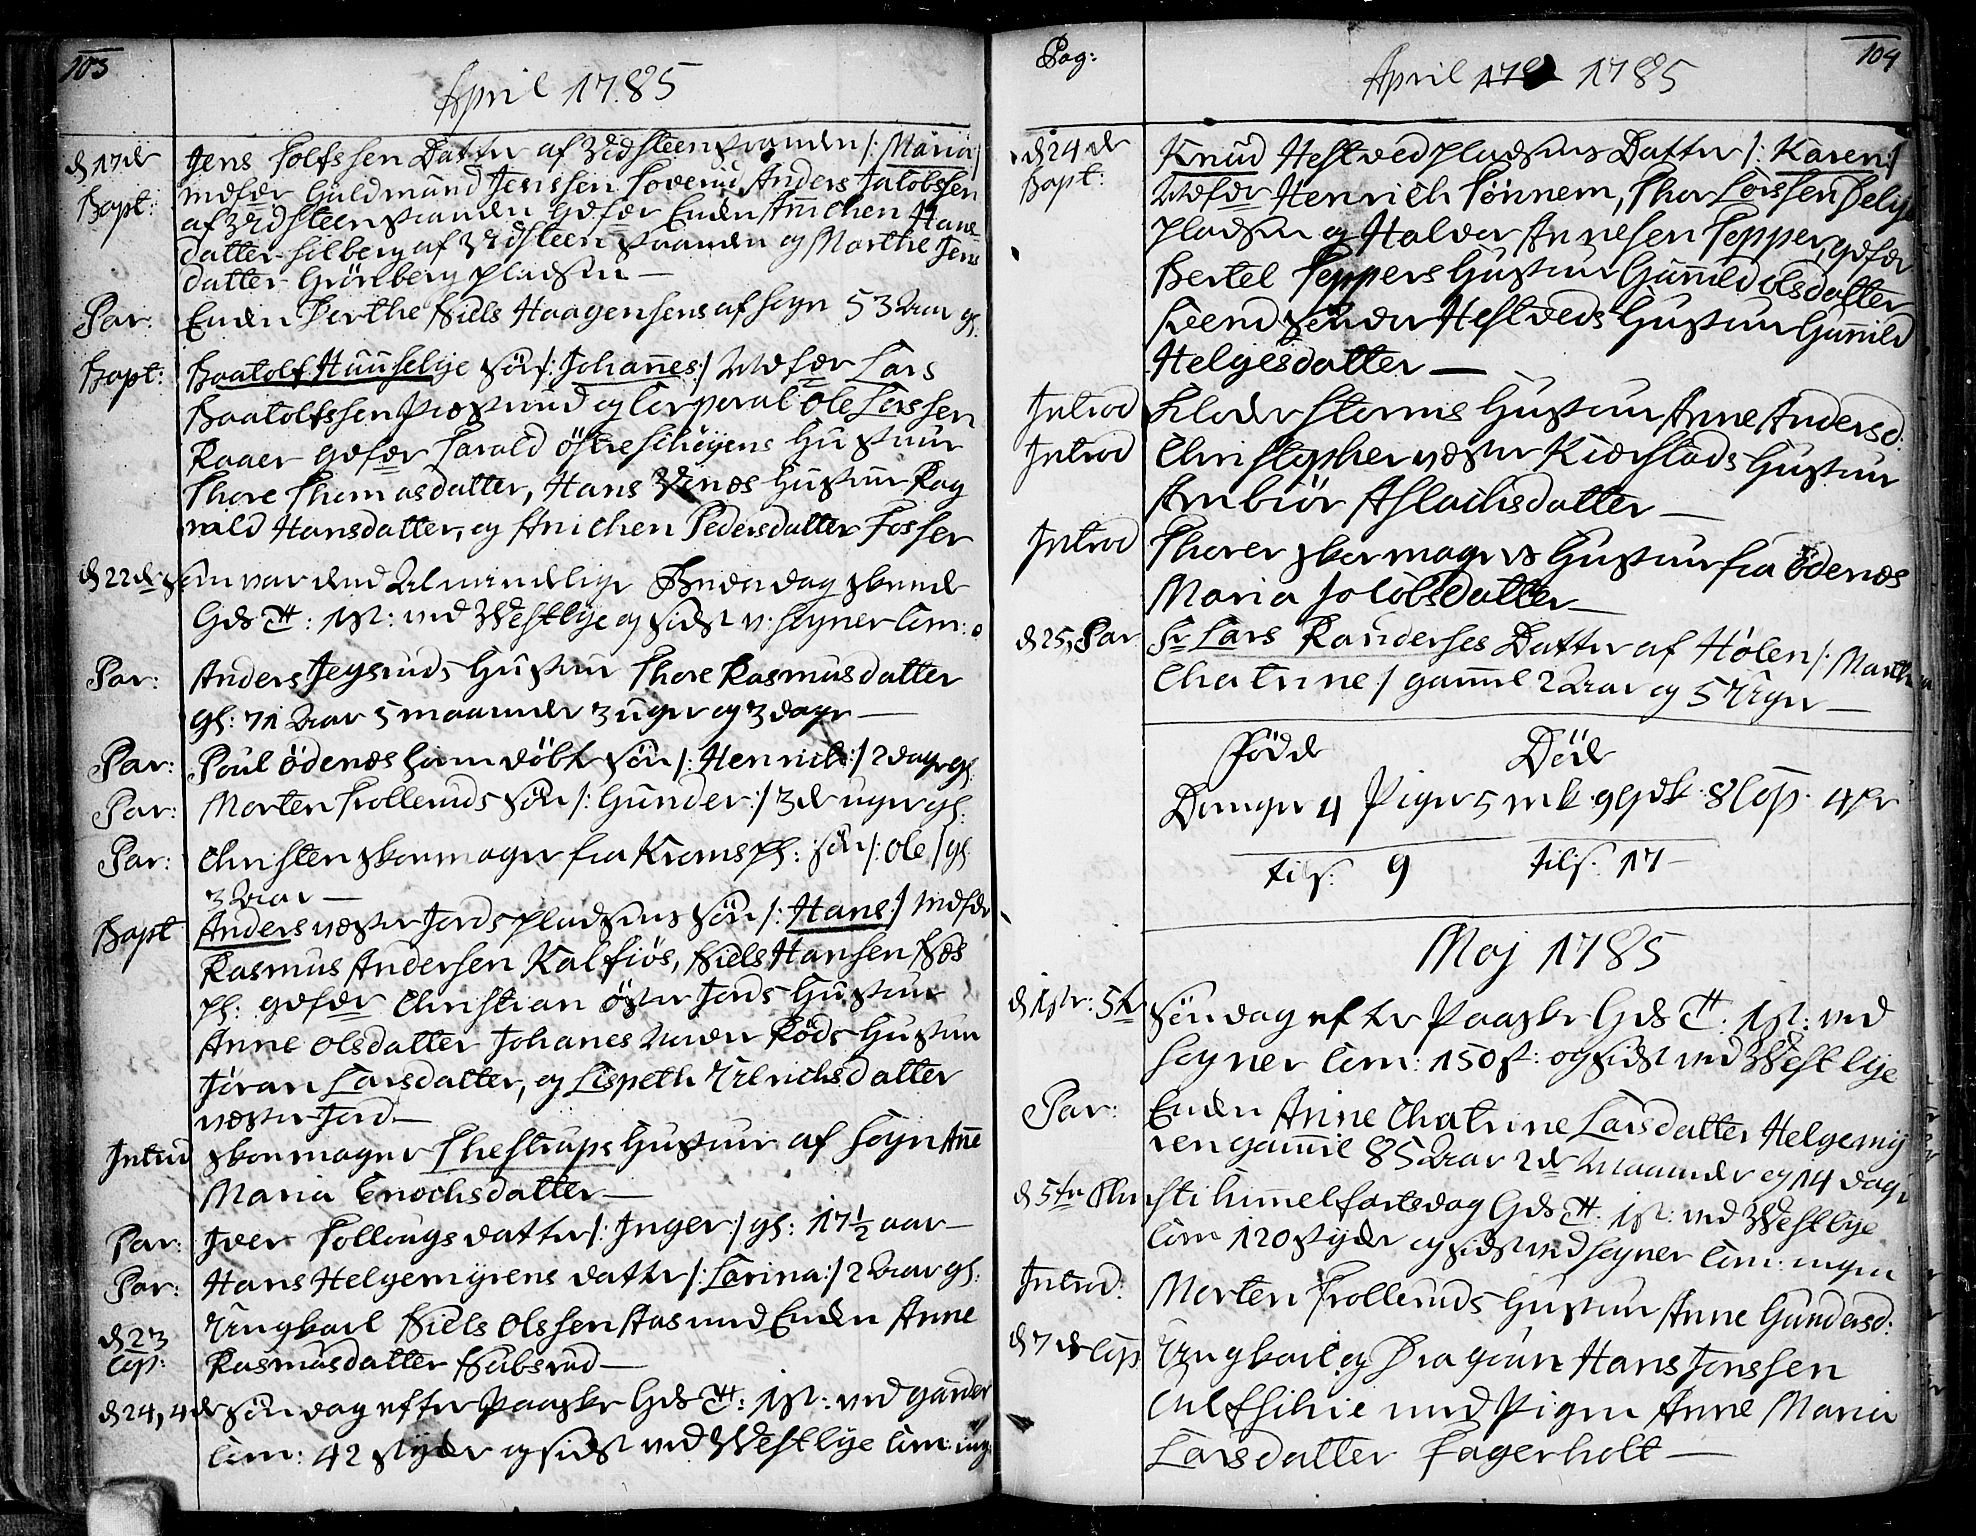 103
April 1785
d 17de Jens Datter af Widsteenstranden /: Maria /
Bapt: Guldmund Jenssen Anders Jacobssen
af Widsteenstranden Enken Anichen Hans
datter af Widsteen stranden og Marthe Jens
datter Grönberg pladsen —
Par: Enken Berthe Niels Haagensens af Sogn 53 Aar gl.
Bapt: Baatolf Haufselye Sön /: Johannes :/ Lars
Baatolfssen og Corporal Ole Larssen
Raaer Harald östre Schöyens Hustrue
Thore Thomasdatter, Hans Hustrue Rag
nild Hansdatter, og Anichen Pedersdatter Fosser
d 22de Sön var dend Almindelige Bededag
Gds : 1st: ved Westbye og sidst v: Sogner Com: 0
Par: Anders Jegsruds Hustrue Thore Rasmusdatter
gl: 71 Aar 5 maaneder 3 uger og 3 dage —
Par: Poul Ödenæs hiemdöbte Sön /: Henrich :/ 2 dage gl.
Par: Morten Trolleruds Sön /: Gunder :/ 3de uger gl:
Par: Christen skoemager fra Krams pl: Sön /: Ole / gl.
3 Aar —
Bapt Anders væster Jords pladsens Sön /: Hans :/
Rasmus Andersen Kalfiös, Niels Hansen Næs
pl: Christian öster Jords Hustrue
Anne Olsdatter Johanes Röds Hustrue
Jöran Larsdatter, og Lispeth Ulrichsdatter
væster Jord —
Introd skoemager Thestrups Hustrue af Sogn Anne
Maria Enochsdatter —
Par: Iver datter /: Inger :/ gl: 17½ aar —
Par: Hans Helgemyrens datter /: Larina :/ 2 Aar gl:
d 23 Ungkarl Niels Olssen Aas med Enken Anne
Cop: Rasmusdatter Nubsrud —
d 24, 4de Söndag efter Paaske Gds : 1st: ved Garder
Com: 42 stÿder og sidst ved Westbye Com: ing
Pag: 104
April 1785
d 24de Knud Hestvedpladsens Datter /: Karen :/
Bapt: Henrich Tönnem, Thor Larssen
pladsen og Halvor Annesen Tepper,
Bertel Teppers Hustrue Gunnild Olsdatter
Hestveds Hustrue Gunnild
Helgesdatter —
Introd Storms Hustrue Anne Andersd:
Introd Christopher væster Kierstads Hustrue
Anbiör Aslachsdatter —
Introd Thorer skormagers Hustrue fra Ödenæs
Maria Jacobsdatter —
d 25, Par Sr Lars Randerses Datter af Hölen /: Martha
Chatrine / gammel 2 Aar og 5 Uger —
Födde Döde
Drenger 4 Piger 5 mk. 9 qvk. 8 Cop. 4 Pr
tils. 9 tils. 17 —
Maj 1785
d 1ste: 5te Söndag efter Paaske Gds : 1st: ved
Sogner Com: 150 st: og sidst ved Westbye
Par: Enken Anne Chatrine Larsdatter Helgemÿ
ren gammel 85 Aar 2de Maaneder og 14 dage
d 5te Chri sti himmelfartsdag Gds : 1st: ved Westbye
Com 120 stÿder og sidst ved Sogner Com: ingen
Introd: Morten Trolleruds Hustrue Anne Gundersd:
d 7de Cop Ungkarl og Dragoun Hans Jenssen
med Pigen Anne Maria
Larsdatter Fagerholt —